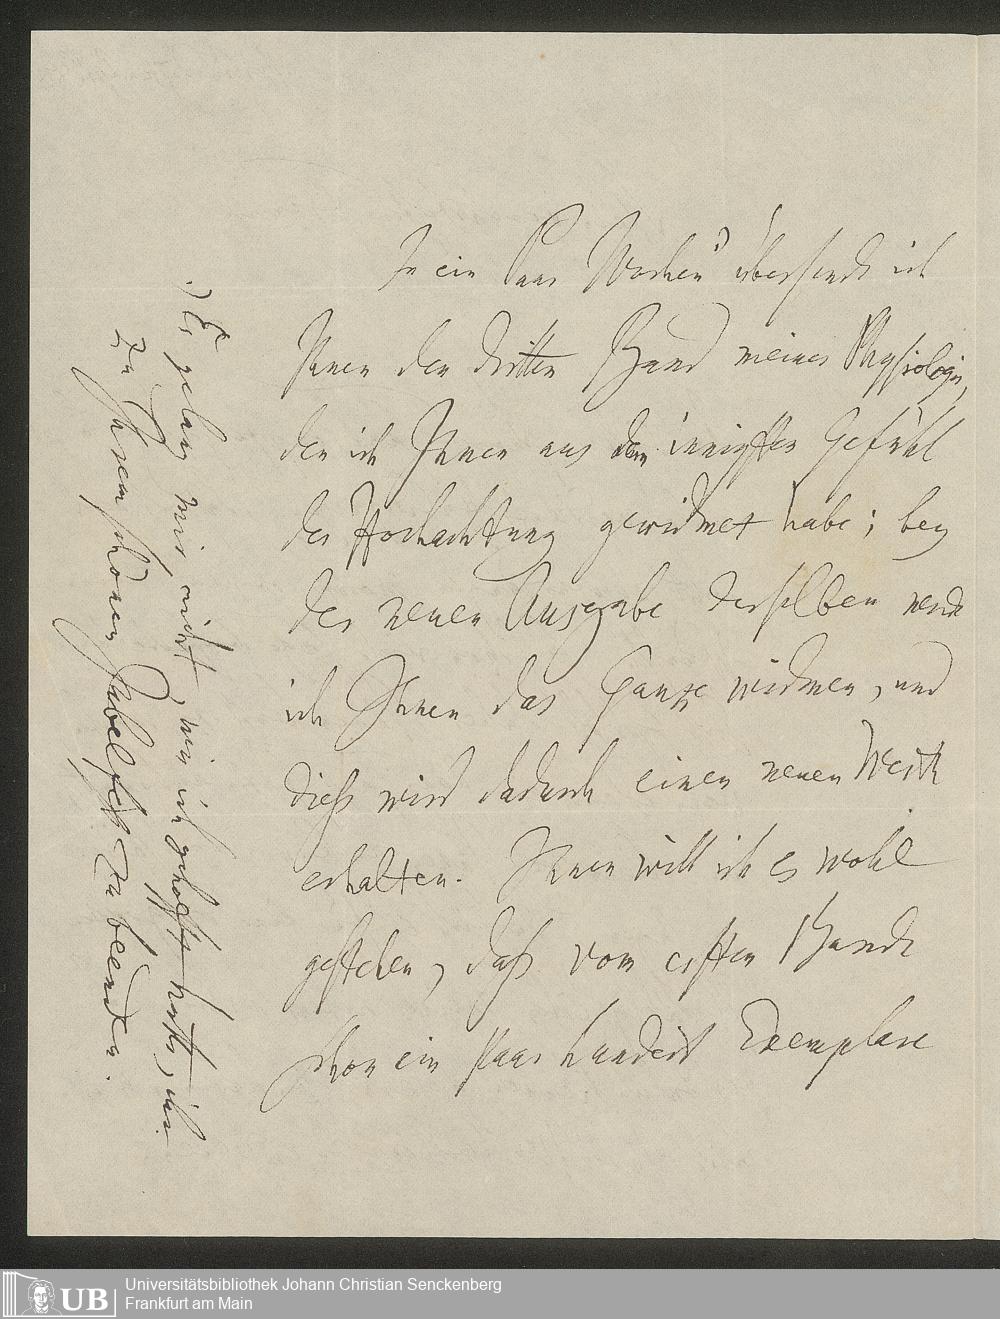 In ein Paar Wochen·) übersende ich
Ihnen den dritten Band meiner Physiologie,
den ich Ihnen aus dem innigsten Gefühl
der Hochachtung gewidmet habe; bey
der neuen Ausgabe derselben werde
ich Ihnen das Ganze widmen, und
dieß wird dadurch einen neuen Werth
erhalten. Ihnen will ich es wohl
gestehen, daß vom ersten Bande
schon ein Paar hundert Exemplare
·) Es gelang mir nicht, wie ich gehofft hatte, ihn
zu Ihrem schönen Jubelfest zu beenden.
UB
Universitätsbibliothek Johann Christian Senckenberg
Frankfurt am Main